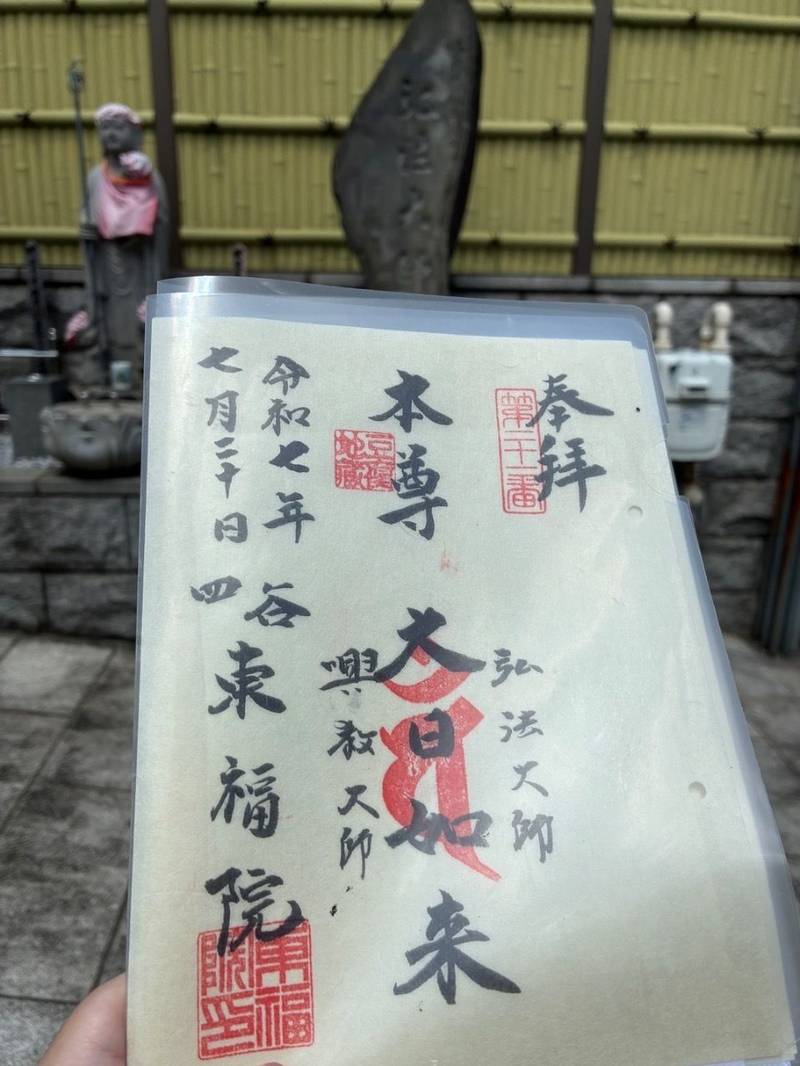 弘法大師
奉拝
第二十一番
弘法大師
本尊 大日如来
豆腐地蔵
興教大師
令和七年
七月二十日
四谷
東福院
東福院印